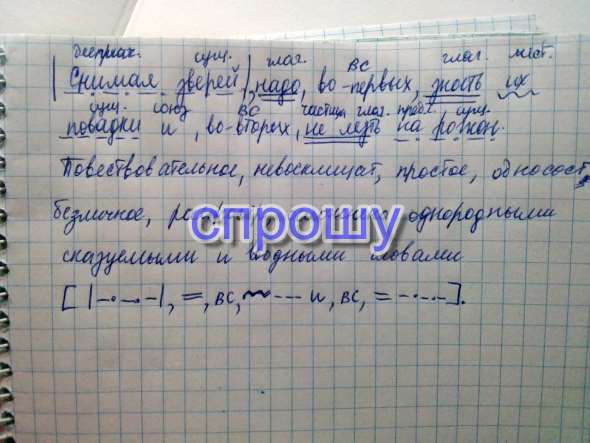 деепричас. сущ. глаг. ВС глаг. мест.
|Снимая зверей|, надо, во-первых, знать их
сущ. союз ВС частица глаг. предл. сущ.
повадки и, во-вторых, не лезть на рожон.
Повествовательное, невосклицат, простое, односост,
безличное, однородными
спрошу
сказуемыми и вводными словами
[ |-.-.-|, =, ВС, ~~~ --- и, ВС, = -.-.- ].